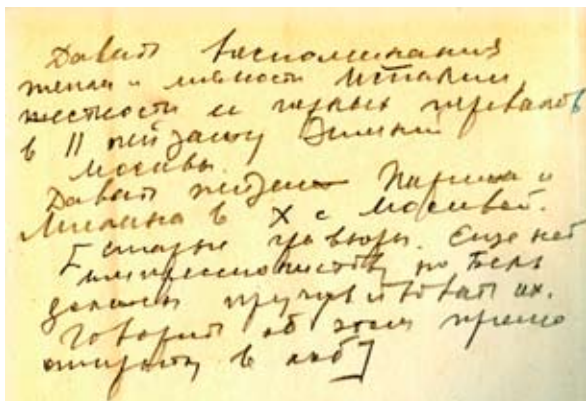 Давать воспоминания
тепла и
местности и горных перевалов
в II пейзажу Зимней
Москвы.
Давать пейзаж Парижа и
Милана в X с Москвой.
[старые гравюры. Еще нет
импрессионистов, но Бель
должен предчувствовать их.
Говорить об этом прямо
в